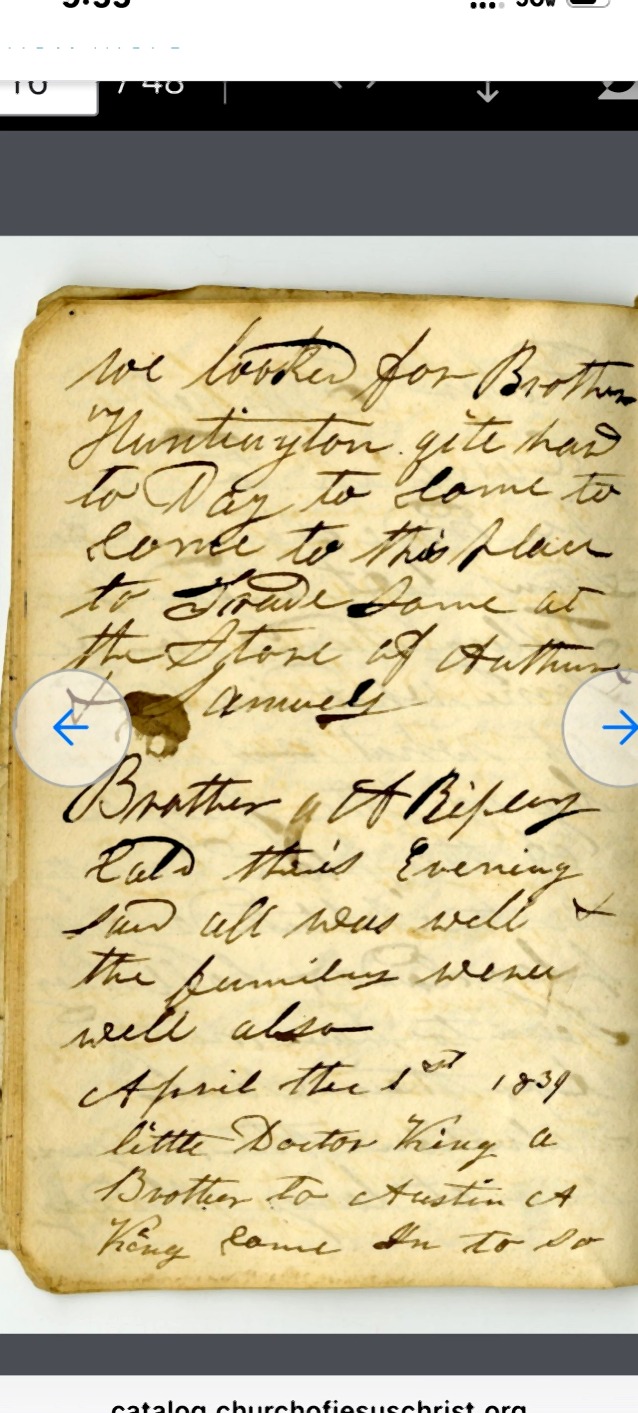 16 / 48
we looked for Brother
Huntington gite hard
to Day to Come to
Come to this place
to Trade Some at
the Store of Arthur
& Samuels
Brother A Ripley
Cald this Evening
said all was well &
the familey were
well also
April the 1st 1839
little Doctor King a
Brother to Austin A
King Come In to so
catalog.churchofjesuschrist.org